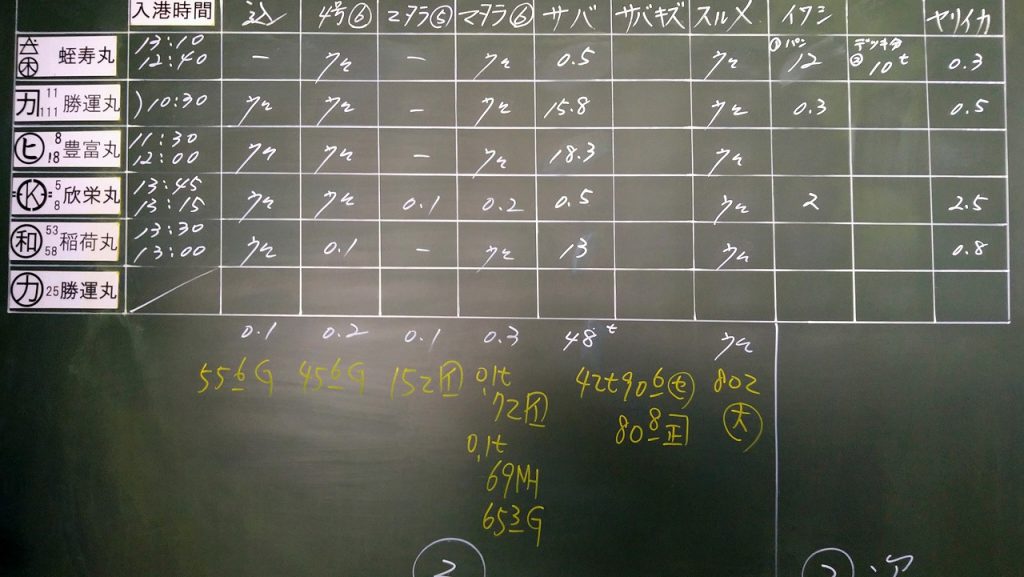 入港時間 込 4号⑥ マダラ⑤ マダラ⑥ サバ サバキズ スルメ イワシ ヤリイカ
蛭寿丸 13:10 12:40 － ウス ウス 0.5 ウス ①バン 12 ② 10t 0.3
カ 11 111 勝運丸 10:30 ウス ウス － ウス 15.8 ウス 0.3 0.5
ヒ 8 18 豊富丸 11:30 12:00 ウス ウス － ウス 18.3 ウス
K 5 8 欣栄丸 13:45 13:15 ウス ウス 0.1 0.2 0.5 ウス 2 2.5
和 53 58 稲荷丸 13:30 13:00 ウス 0.1 － ウス 13 ウス 0.8
カ 25 勝運丸
0.1 0.2 0.1 0.3 48t ウス
556G 456G 152イ 0.1t 42t906 802
72イ 808正 大
0.1t
69MH
653G
2 2 次